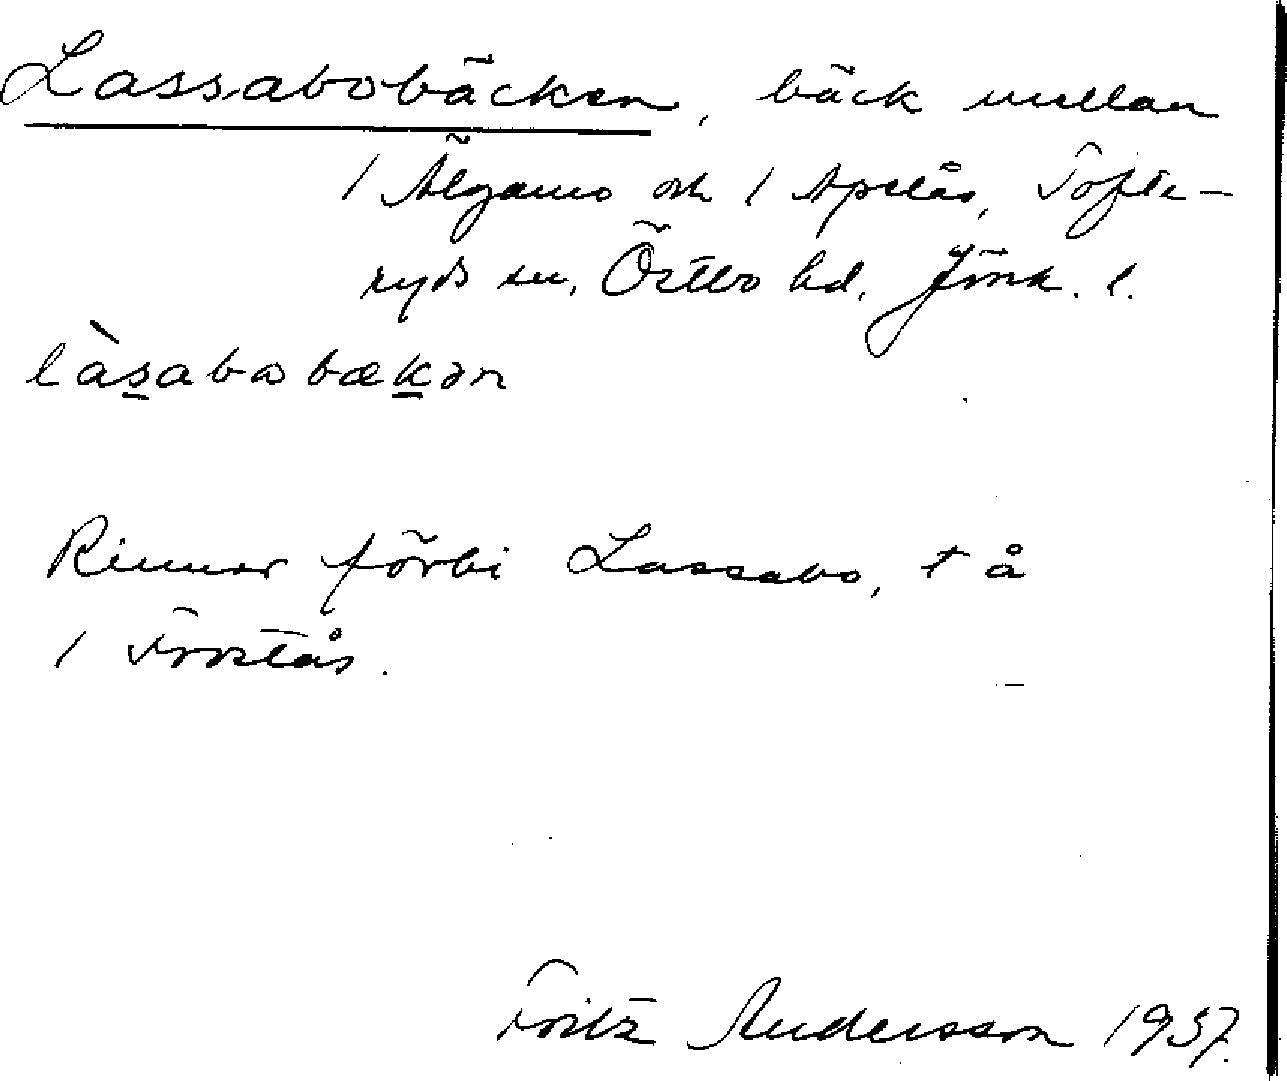 Lassabobäcken, bäck mellan
1 Älgamo och 1 Apelås, Tofte-
ryds sn, Östbo hd. Jönk. l.
làsabobækən
Rinner förbi Lassabo, t å
1 Frostås.
Fritz Andersson 1937.